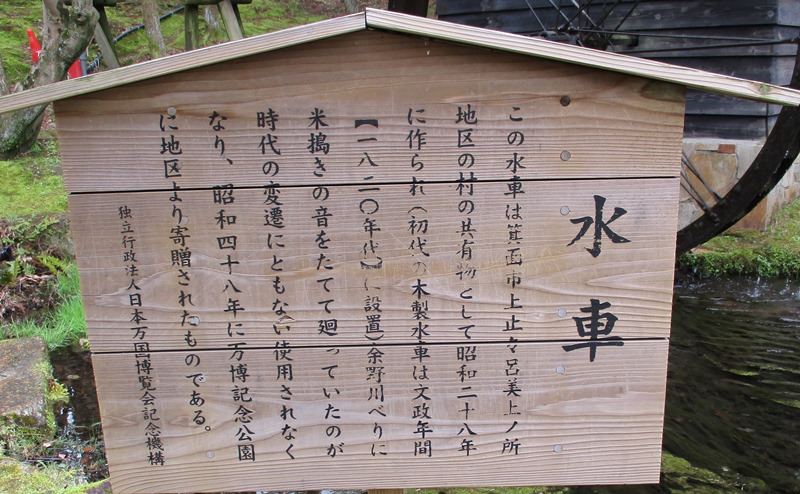 水車
この水車は箕面市上止々呂美上ノ所
地区の村の共有物として昭和二十八年
に作られ(初代の木製水車は文政年間
【一八二〇年代】に設置)余野川べりに
米搗きの音をたてて廻っていたのが
時代の変遷にともない使用されなく
なり、昭和四十八年に万博記念公園
に地区より寄贈されたものである。
独立行政法人日本万国博覧会記念機構